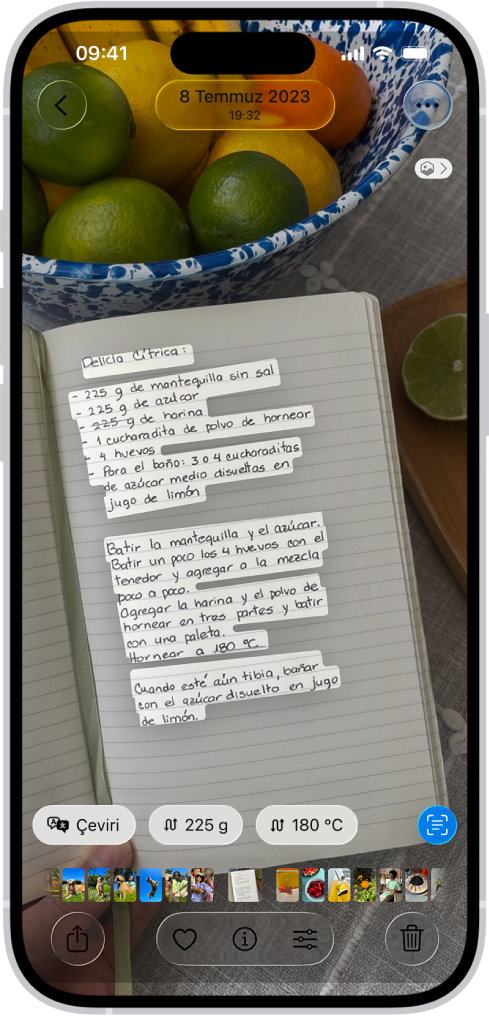 09:41
8 Temmuz 2023
19:32
Delicia Cítrica:
- 225 g de mantequilla sin sal
- 225 g de azúcar
- 225 g de harina
- 1 cucharadita de polvo de hornear
- 4 huevos
- Para el baño: 3 o 4 cucharaditas
de azúcar medio disueltas en
jugo de limón
Batir la mantequilla y el azúcar.
Batir un poco los 4 huevos con el
tenedor y agregar a la mezcla
poco a poco.
Agregar la harina y el polvo de
hornear en tres partes y batir
con una paleta.
Hornear a 180 °C.
Cuando esté aún tibia, bañar
con el azúcar disuelto en jugo
de limón.
Çeviri
225 g
180 °C